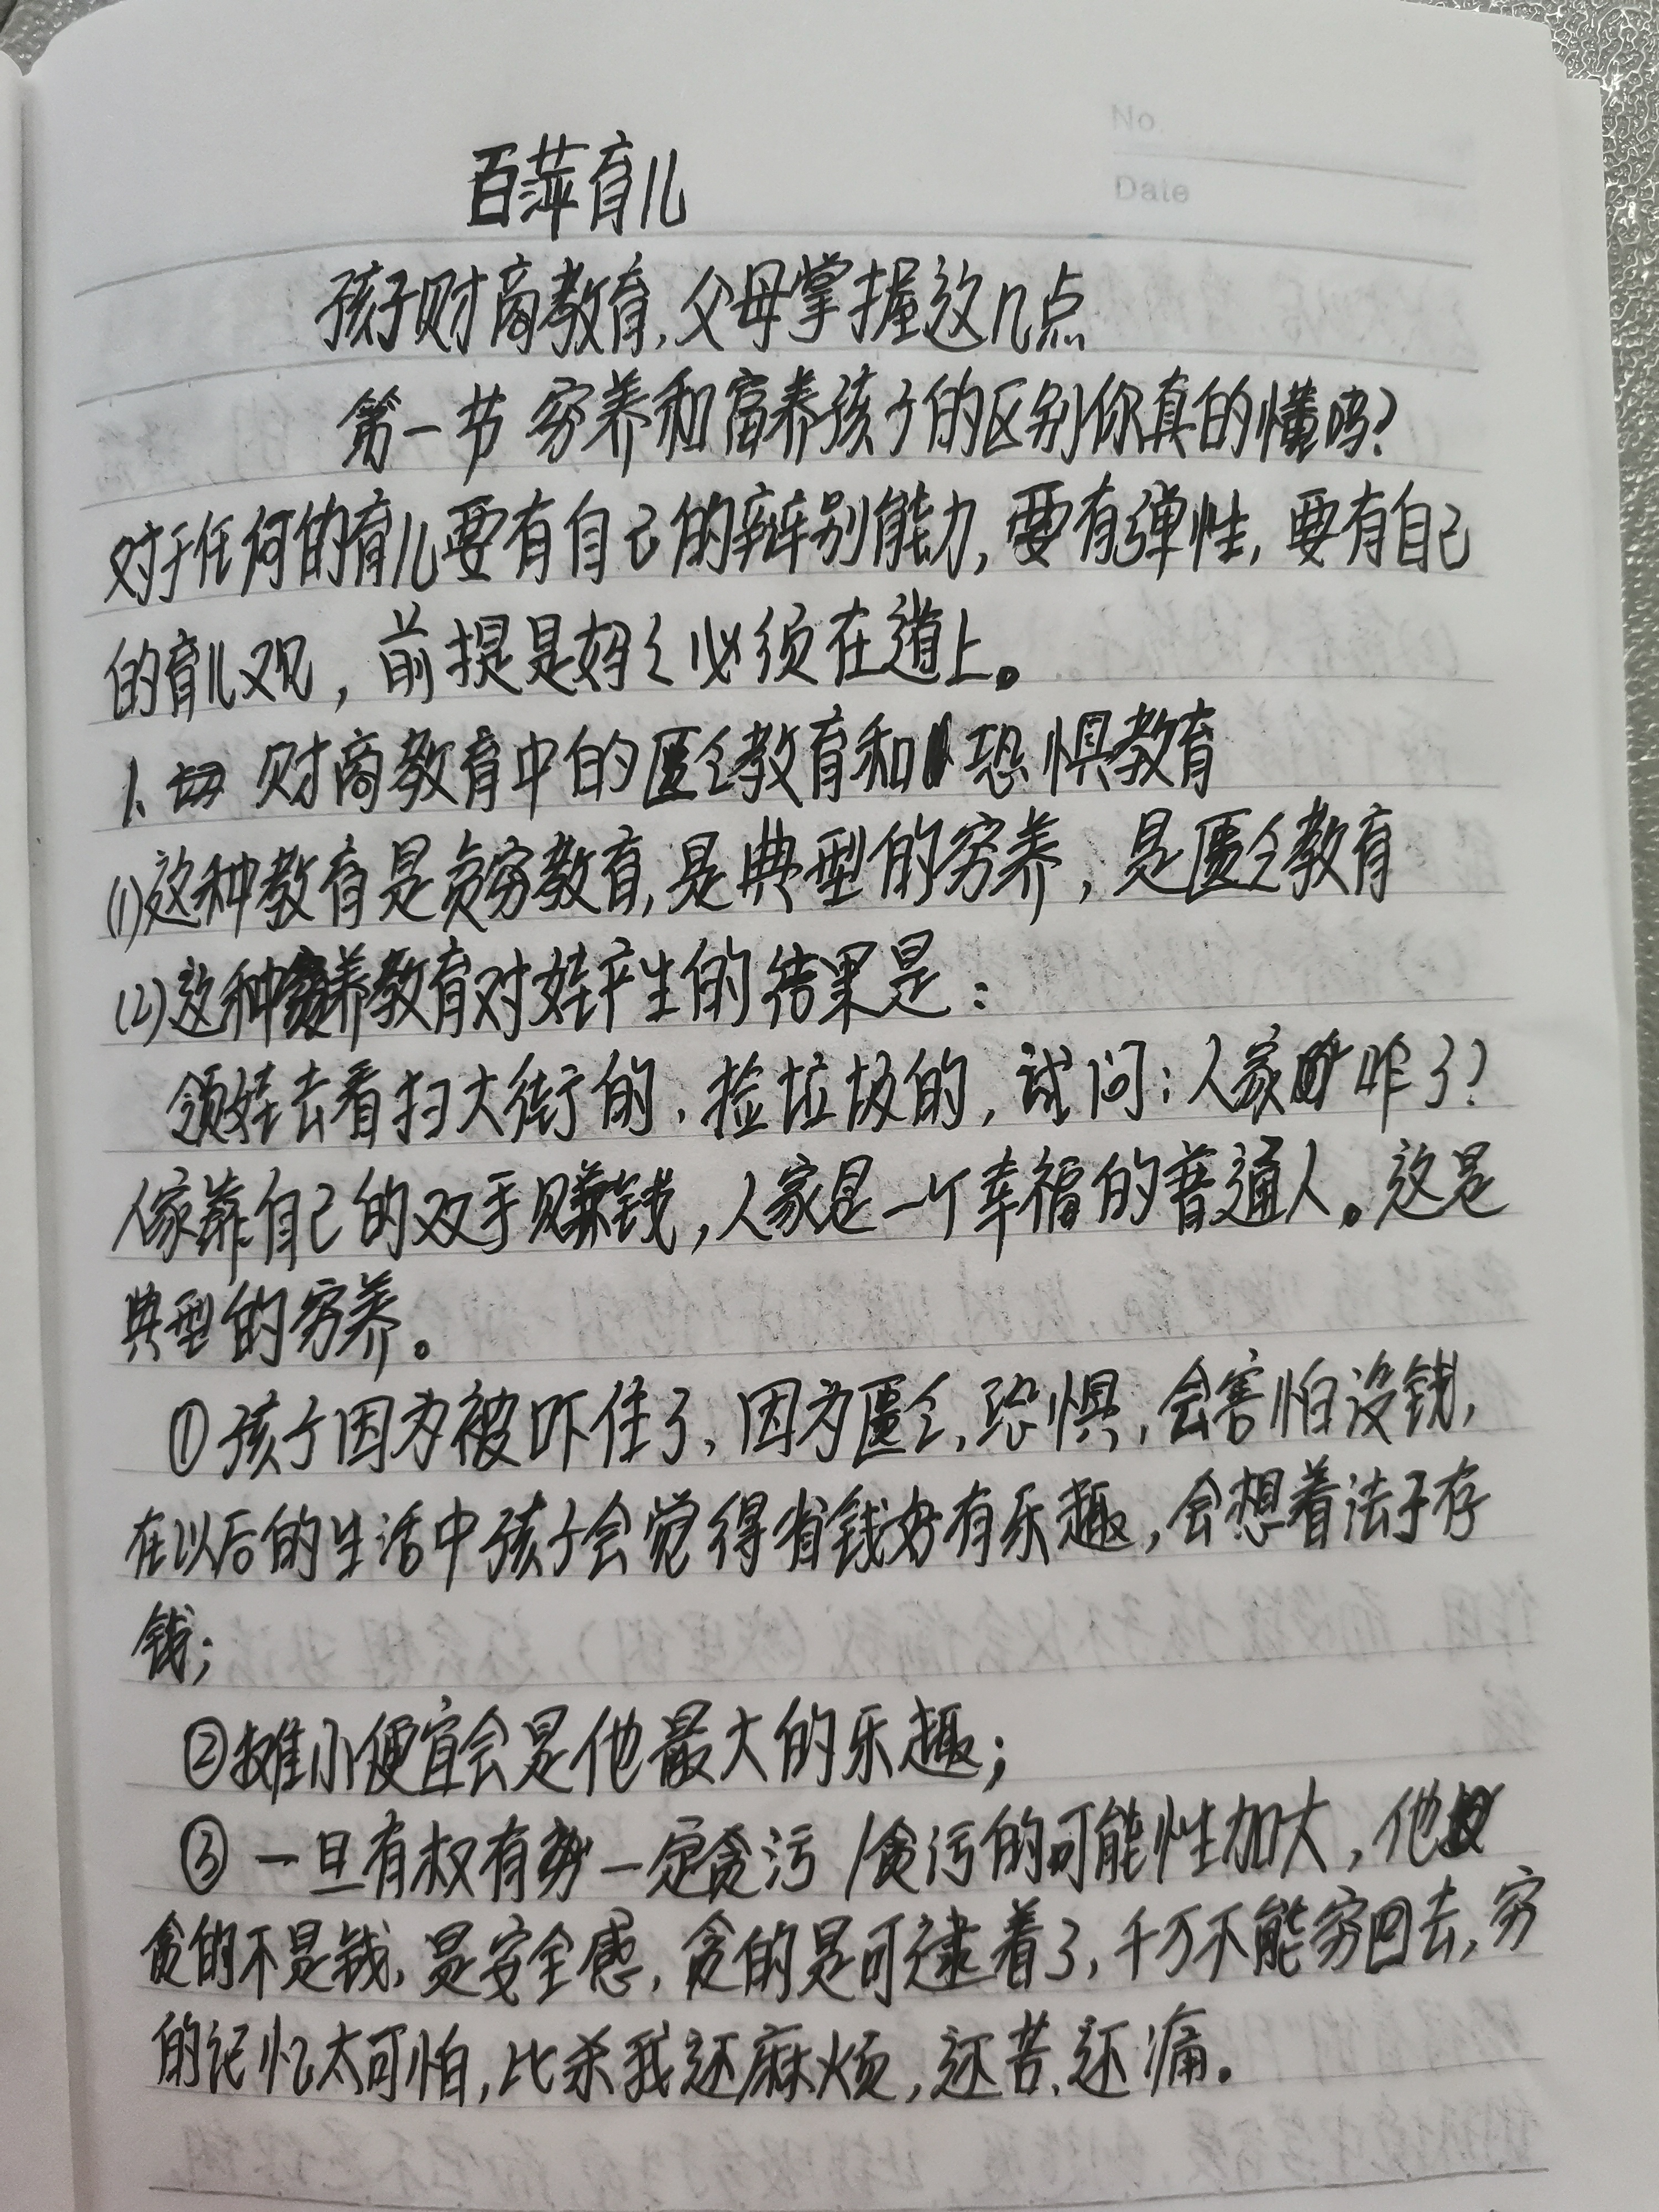 No.
Date
百萍育儿
孩子财商教育,父母掌握这几点
第一节 穷养和富养孩子的区别你真的懂吗?
对于任何的育儿要有自己的辩别能力,要有弹性,要有自己
的育儿观,前提是妈妈必须在道上。
1、财商教育中的匮乏教育和恐惧教育
(1)这种教育是贪穷教育,是典型的穷养,是匮乏教育
(2)这种穷养教育对娃产生的结果是:
领娃去看扫大街的、捡垃圾的,试问:人家咋了?
人家靠自己的双手赚钱,人家是一个幸福的普通人。这是
典型的穷养。
①孩子因为被吓住了、因为匮乏,恐惧,会害怕没钱,
在以后的生活中孩子会觉得省钱好有乐趣,会想着法子存
钱;
②摊小便宜会是他最大的乐趣;
③一旦有权有势一定贪污/贪污的可能性加大,他
贪的不是钱,是安全感,贪的是可逮着了,千万不能穷回去,穷
的记忆太可怕,比杀我还麻烦,还苦、还痛。